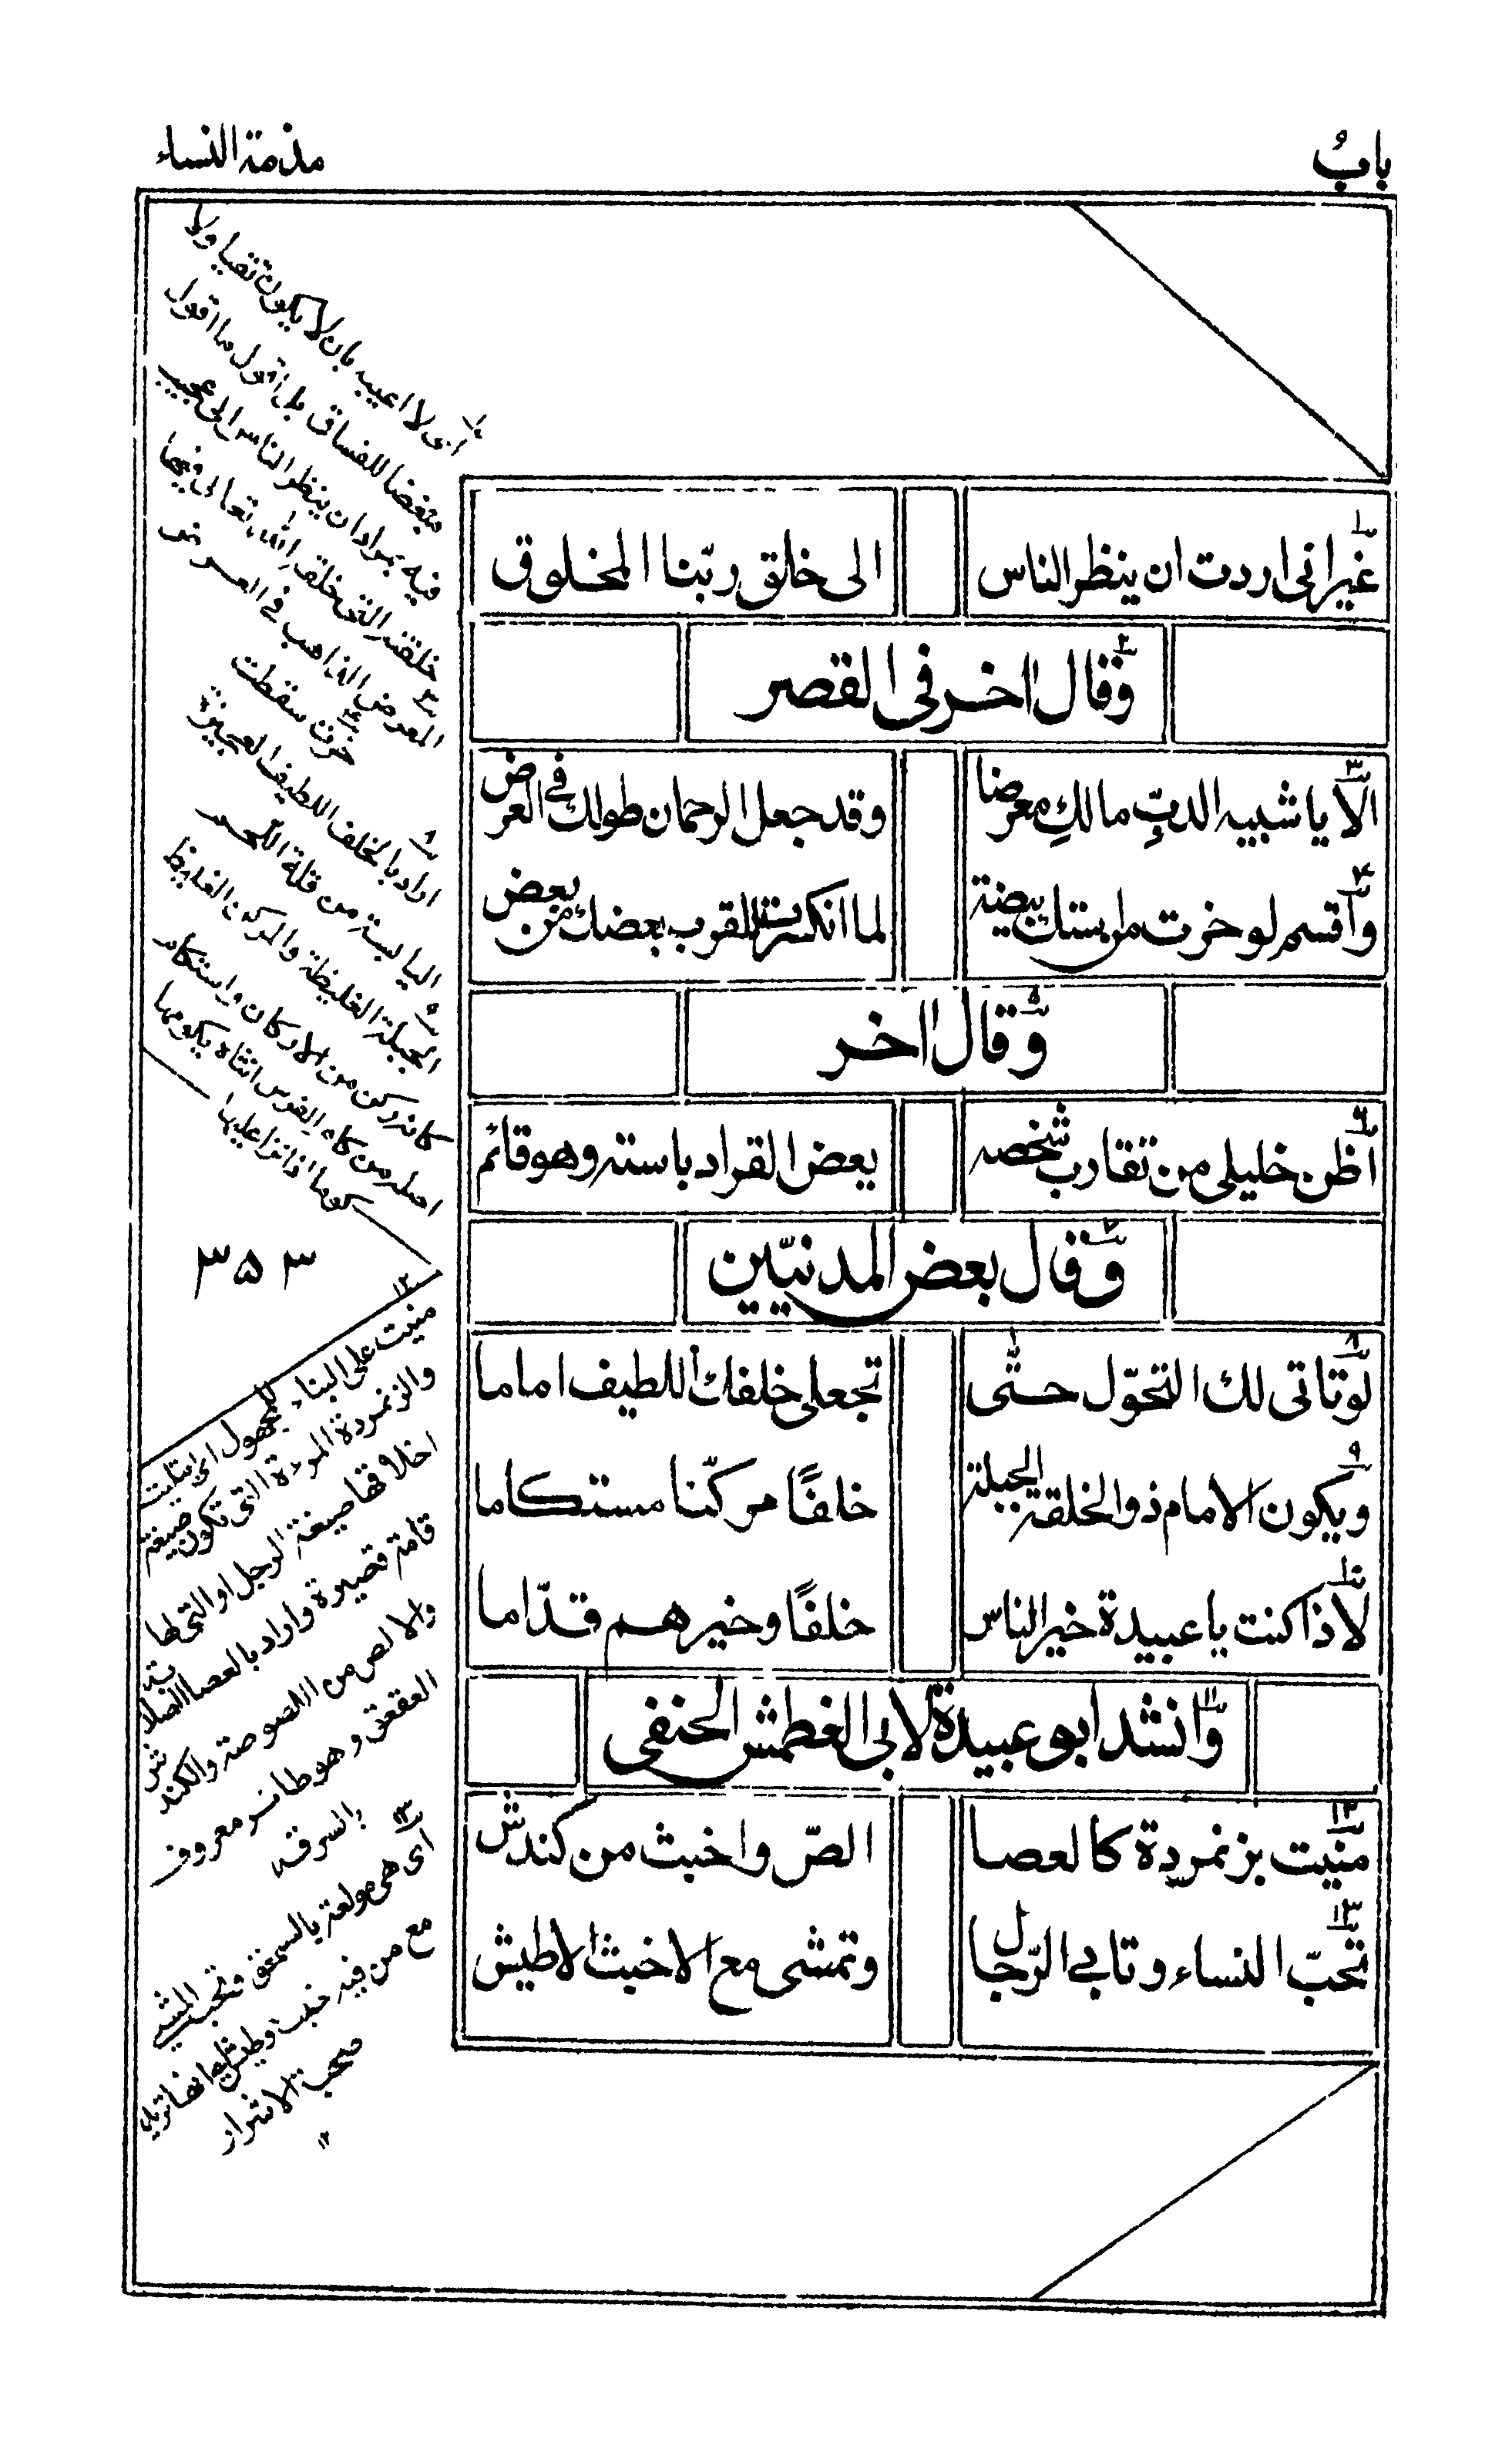 باب
مذمة النساء
غير اني اردت ان ينظر الناس
الى خلق ربّنا المخلوق
وقال اخر في القصر
الا يا شبيه الدبّ مالكِ معرضا
وقد جعل الرحمان طولك في العرض
واقسم لو خرت من استك بيضة
لما انكسرت للقرب بعضك من بعض
وقال اخر
اظن خليلي من تقارب شخصه
يعض القراد باسته وهو قائم
وقال بعض المدنيّين
لو تاتى لك التحوّل حتّى
تجعلي خلفك اللطيف اماما
ويكون الامام ذو الخلقة الجبلة
خلفًا مركّنا مستكاما
لاذا كنت يا عبيدة خير الناس
خلفًا وخيرهم قدّاما
وانشد ابو عبيدة لابي الغطمش الحنفي
منيت بزنمردة كالعصا
الصّ واخبث من كندش
تحبّ النساء وتابى الرّجال
وتمشي مع الاخبث الاطيش
اى لا اعيبه بان لا يكون تقيا ولا
مبغضا للفساق بل اقول ما اقول
فيه بمراد ان ينظر الناس الى عجيب
خلقته التي خلق الله تعالى فيها
المعرض الذاهب في العرض
خرت سقطت
اراد بالخلف اللطيف العجيزة
اليابسة من قلة اللحم
الجبلة الغليظة والمركن الغليظ
كانه ركن من الاركان واستكام
اصله من كام الفرس انثاه يكومها
كوما اذا نزا عليها
٣٥٣
منيت على البناء للمجهول اي ابتليت
والزنمردة المرءة التي تكون صيغة
اخلاقها صيغة الرجل او التي لها
قامة قصيرة واراد بالعصا الصلابة
والالص من اللصوصة والكندش
العقعق وهو طائر معروف
بالسرقة
اى هي مولعة بالسحق وتحب المشي
مع من فيه خبث وطيش
صحبة الاشرار
١٢